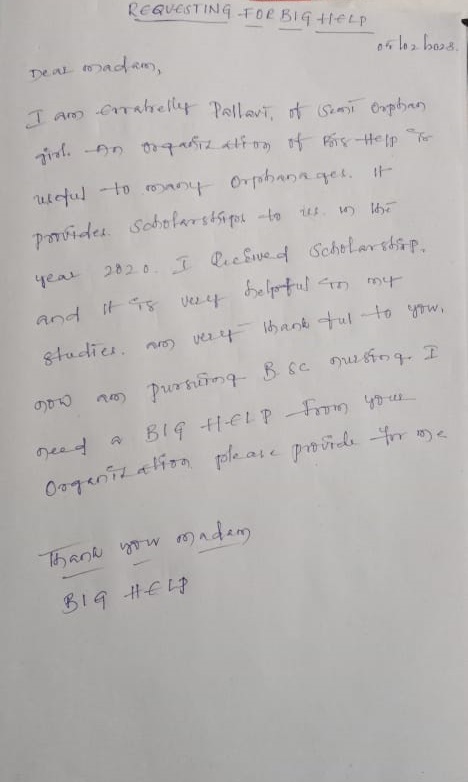 REQUESTING FOR BIG HELP
05/02/2023.
Dear madam,
I am Errabelly Pallavi, of Semi Orphan
girl. An Organization of Big Help is
useful to many Orphanages. It
provides Scholarships to us. in the
year 2020. I Received Scholarship.
and it is very helpful in my
studies. am very thank ful to you.
now am pursuing B sc nursing. I
need a BIG HELP from your
Organization please provide for me
Thank you madam
BIG HELP